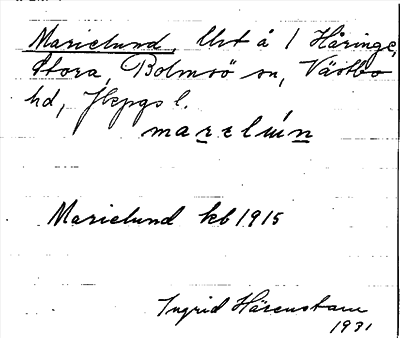 Marielund, lht å 1 Håringe,
Stora, Bolmsö sn, Västbo
hd, Jkpgs l.
marelún
Marielund kb 1915
Ingrid Härenstam
1931